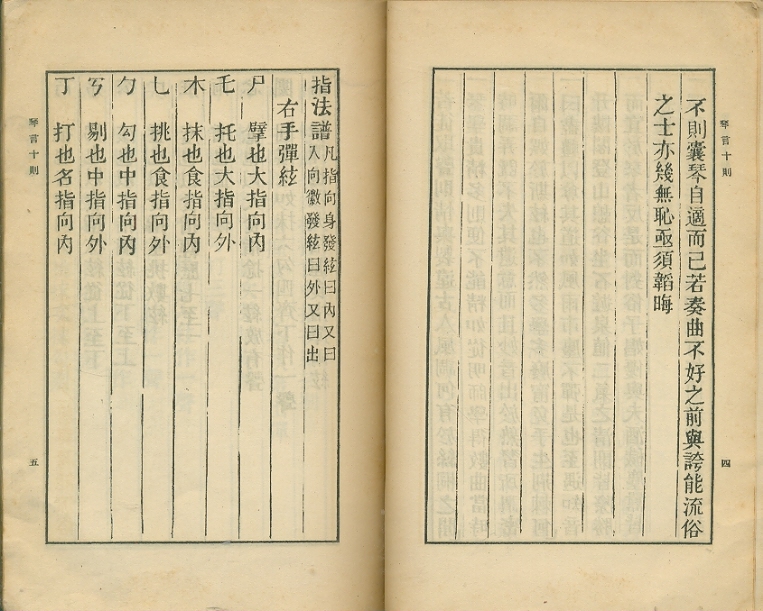 琴言十則
不則囊琴自適而已若奏曲不好之前與誇能流俗
之士亦幾無恥亟須韜晦
四
指法譜 凡指向身發絃曰內又曰
入向徽發絃曰外又曰出
右手彈絃
尸 擘也大指向內
乇 托也大指向外
木 抹也食指向內
乚 挑也食指向外
勹 勾也中指向內
丂 剔也中指向外
丁 打也名指向內
琴言十則
五